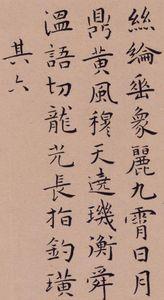 絲綸垂象麗九霄日月
鼎黃風穆天遶璣衡舜
溫語切龍光長指釣璜
其六